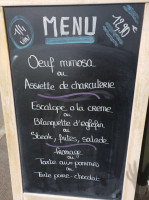 MENU
12,90€
Oeuf mimosa
ou
Assiette de charcuterie
Escalope a la creme
ou
Blanquette d'eglefin
ou
Steak, frites, salade
fromage
ou
Tarte aux pommes
ou
Tarte poire-chocolat